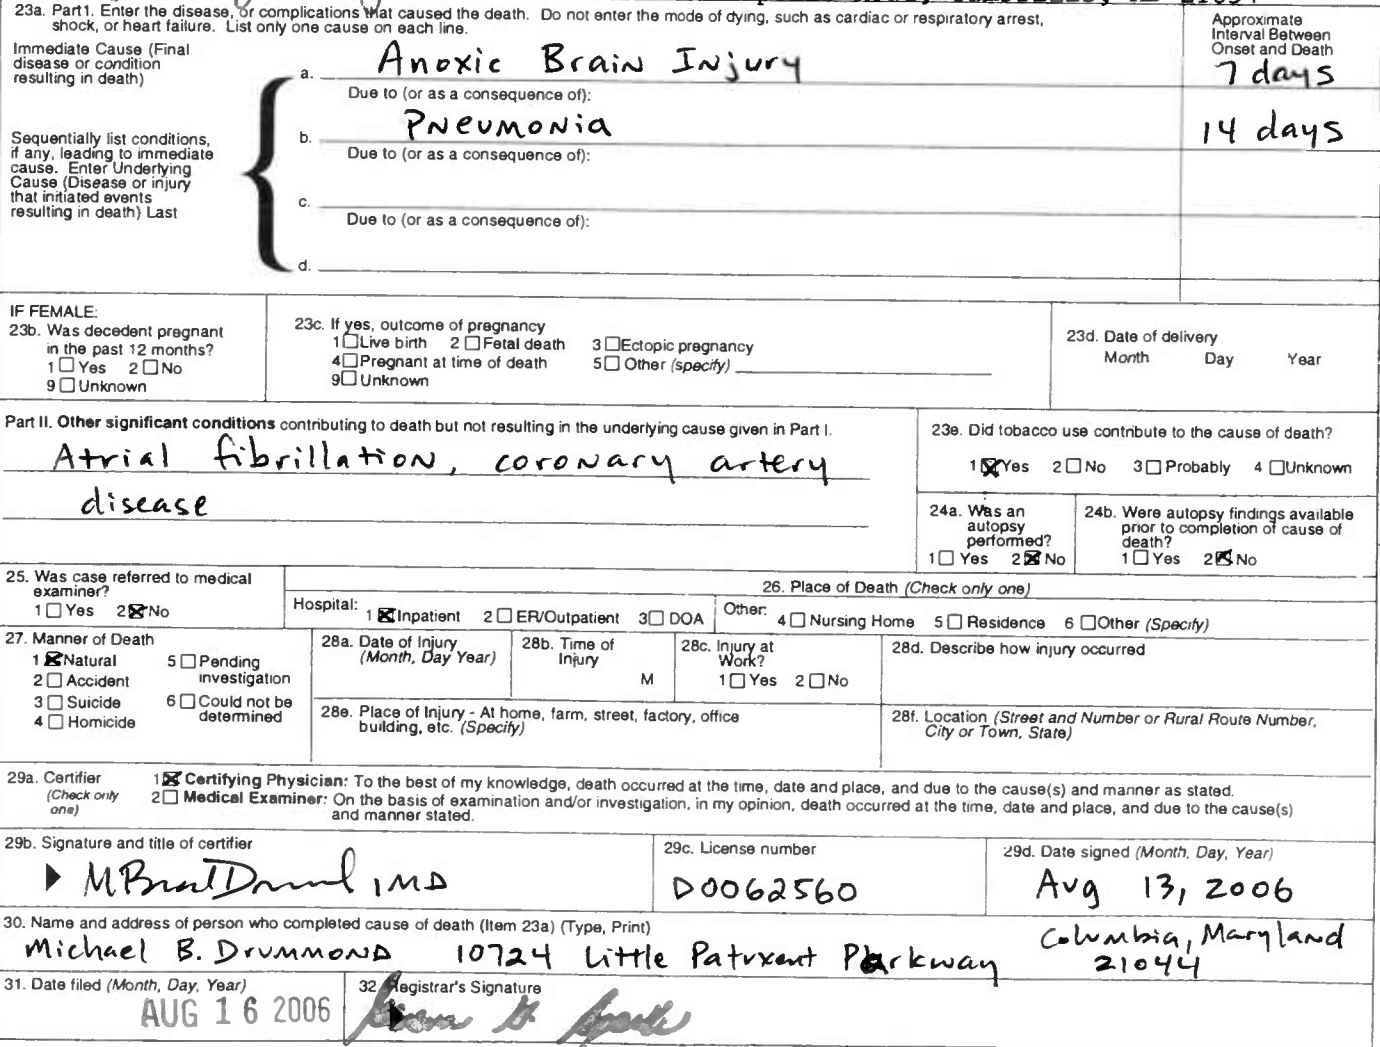 23a. Part1. Enter the disease, or complications that caused the death. Do not enter the mode of dying, such as cardiac or respiratory arrest,
shock, or heart failure. List only one cause on each line.
Approximate
Interval Between
Onset and Death
Immediate Cause (Final
disease or condition
resulting in death)
a. Anoxic Brain Injury 7 days
Due to (or as a consequence of):
Sequentially list conditions,
if any, leading to immediate
cause. Enter Underlying
Cause (Disease or injury
that initiated events
resulting in death) Last
b. Pneumonia 14 days
Due to (or as a consequence of):
c.
Due to (or as a consequence of):
d.
IF FEMALE:
23b. Was decedent pregnant
in the past 12 months?
1 ☐ Yes 2 ☐ No
9 ☐ Unknown
23c. If yes, outcome of pregnancy
1 ☐ Live birth 2 ☐ Fetal death 3 ☐ Ectopic pregnancy
4 ☐ Pregnant at time of death 5 ☐ Other (specify)
9 ☐ Unknown
23d. Date of delivery
Month Day Year
Part II. Other significant conditions contributing to death but not resulting in the underlying cause given in Part I.
Atrial fibrillation, coronary artery
disease
23e. Did tobacco use contribute to the cause of death?
1 ☒ Yes 2 ☐ No 3 ☐ Probably 4 ☐ Unknown
24a. Was an
autopsy
performed?
1 ☐ Yes 2 ☒ No
24b. Were autopsy findings available
prior to completion of cause of
death?
1 ☐ Yes 2 ☒ No
25. Was case referred to medical
examiner?
1 ☐ Yes 2 ☒ No
26. Place of Death (Check only one)
Hospital: 1 ☒ Inpatient 2 ☐ ER/Outpatient 3 ☐ DOA Other: 4 ☐ Nursing Home 5 ☐ Residence 6 ☐ Other (Specify)
27. Manner of Death
1 ☒ Natural 5 ☐ Pending
investigation
2 ☐ Accident
3 ☐ Suicide 6 ☐ Could not be
determined
4 ☐ Homicide
28a. Date of Injury
(Month, Day Year)
28b. Time of
Injury
M
28c. Injury at
Work?
1 ☐ Yes 2 ☐ No
28d. Describe how injury occurred
28e. Place of Injury - At home, farm, street, factory, office
building, etc. (Specify)
28f. Location (Street and Number or Rural Route Number,
City or Town, State)
29a. Certifier
(Check only
one)
1 ☒ Certifying Physician: To the best of my knowledge, death occurred at the time, date and place, and due to the cause(s) and manner as stated.
2 ☐ Medical Examiner: On the basis of examination and/or investigation, in my opinion, death occurred at the time, date and place, and due to the cause(s)
and manner stated.
29b. Signature and title of certifier
, MD
29c. License number
D0062560
29d. Date signed (Month, Day, Year)
Aug 13, 2006
30. Name and address of person who completed cause of death (Item 23a) (Type, Print)
Michael B. Drummond 10724 Little Patuxent Parkway Columbia, Maryland
21044
31. Date filed (Month, Day, Year)
AUG 16 2006
32 Registrar's Signature